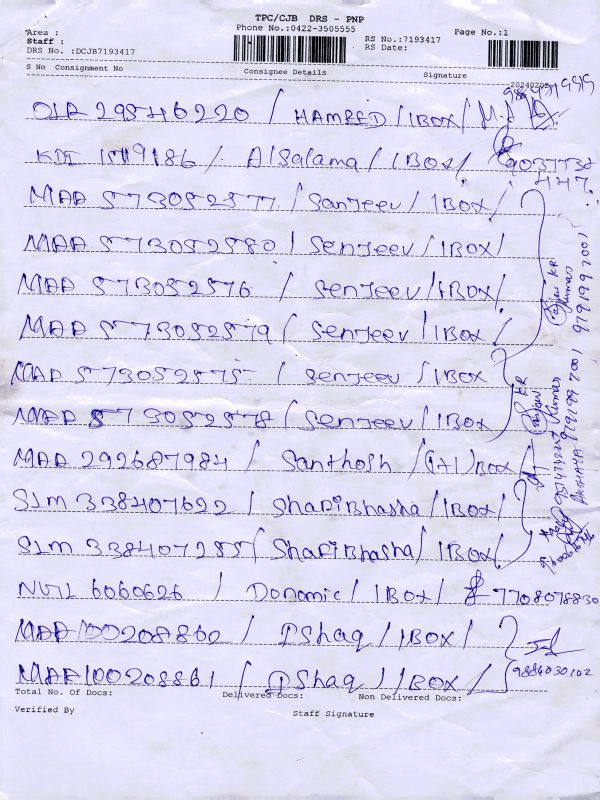 TPC/CJB DRS - PNP
Area :
Phone No.:0422-3505555
Page No.:1
Staff :
RS No.:7193417
DRS No. :DCJB7193417
RS Date:
S No Consignment No
Consignee Details
Signature
OIA 29546220 / HAMEED / 1BOX /
KDI 1519186 / Alsalama / 1BOX / 9037738
447
MAA 573052577 / Sanjeev / 1BOX /
MAA 573052580 / Senjeev / 1BOX
MAA 573052576 / Senjeev / 1BOX /
MAA 573052579 / Senjeev / 1BOX /
MAA 573052575 / Senjeev / 1BOX
MAA 573052578 / Senjeev / 1BOX
MAA 292687984 / Santhosh / (1+1)BOX /
SLM 338407622 / ShafiBhasha / 1BOX /
SLM 338407255 / ShafiBhasha / 1BOX /
6060626 / Donamic / 1BOX / 7708078830
MAA 100208860 / IShaq / 1BOX /
MAA 100208861 / IShaq / 1BOX /
9884030102
KR
Kumar
9791997001
KR
Kumar
9791997001
AKSHAYA
Total No. Of Docs:
Delivered Docs:
Non Delivered Docs:
Verified By
Staff Signature